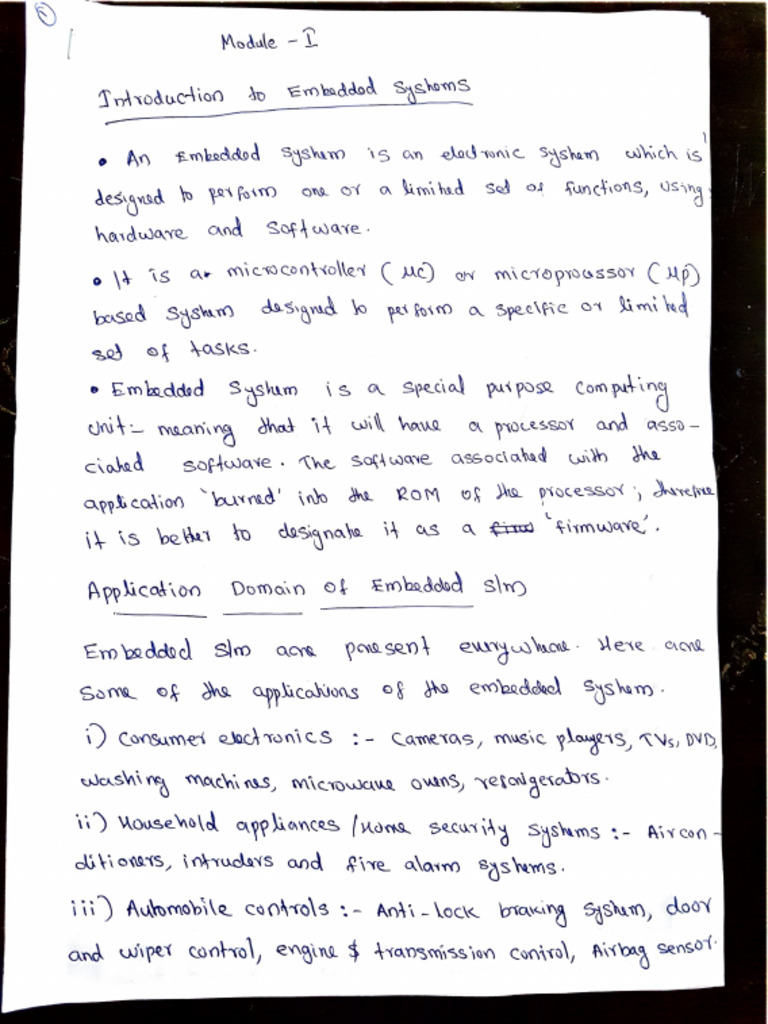 Module - I
Introduction to Embedded Systems
• An Embedded System is an electronic system which is
designed to perform one or a limited set of functions, using
hardware and software.
• It is a microcontroller (μc) or microprocessor (μp)
based system designed to perform a specific or limited
set of tasks.
• Embedded System is a special purpose computing
unit:- meaning that it will have a processor and asso-
ciated software. The software associated with the
application 'burned' into the ROM of the processor; therefore
it is better to designate it as a 'firmware'.
Application Domain of Embedded s/m
Embedded s/m are present everywhere. Here are
some of the applications of the embedded system.
i) Consumer electronics :- Cameras, music players, TVs, DVD,
washing machines, microwave ovens, refrigerators.
ii) Household appliances /Home security systems :- Aircon-
ditioners, intruders and fire alarm systems.
iii) Automobile controls :- Anti-lock braking system, door
and wiper control, engine & transmission control, Airbag sensor.